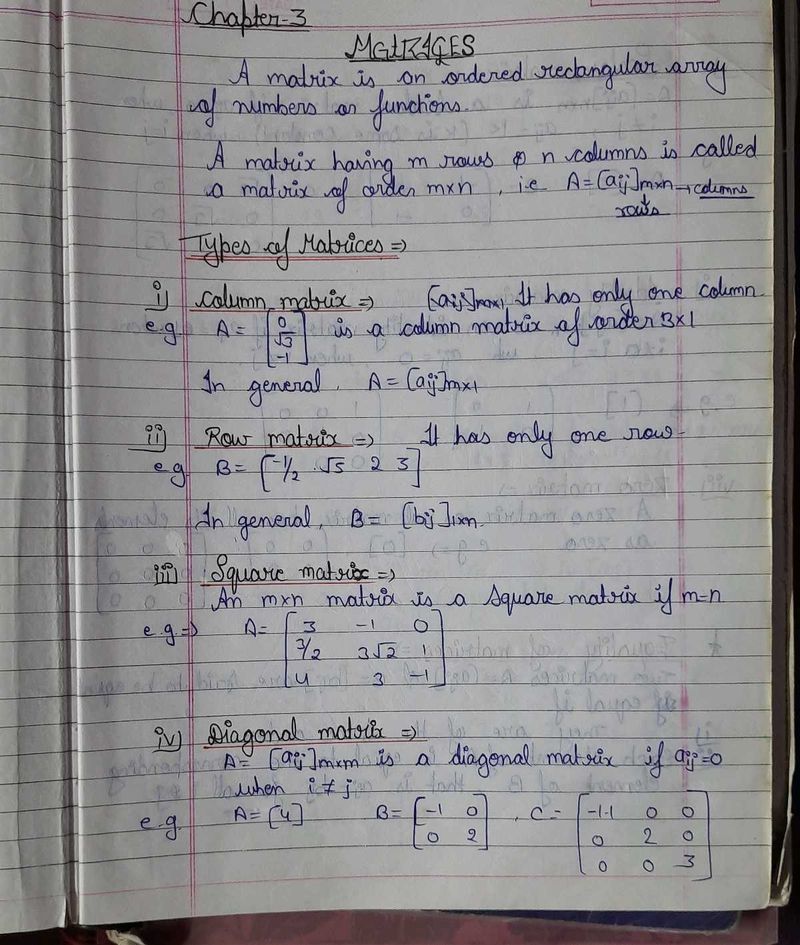 Chapter-3
MATRICES
A matrix is an ordered rectangular array
of numbers or functions.
A matrix having m rows & n columns is called
a matrix of order m×n , i.e A=[aij]m×n → columns
↓
rows
Types of Matrices ⇒
i) Column matrix ⇒ [aij]m×1 It has only one column.
e.g A = [0 √3 -1] is a column matrix of order 3×1
In general, A = [aij]m×1
ii) Row matrix ⇒ It has only one row-
e.g B = [-1/2 √5 2 3]
In general, B = [bij]1×n.
iii) Square matrix ⇒
An m×n matrix is a square matrix if m=n
e.g ⇒ A = [3 -1 0
3/2 3√2 1
4 3 -1]
iv) Diagonal matrix ⇒
A = [aij]m×m is a diagonal matrix if aij=0
when i ≠ j
e.g. A = [4] B = [-1 0 , C = [-1.1 0 0
0 2] 0 2 0
0 0 3]